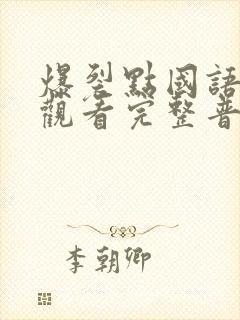 爆裂點國語
觀看完整普
李朝卿